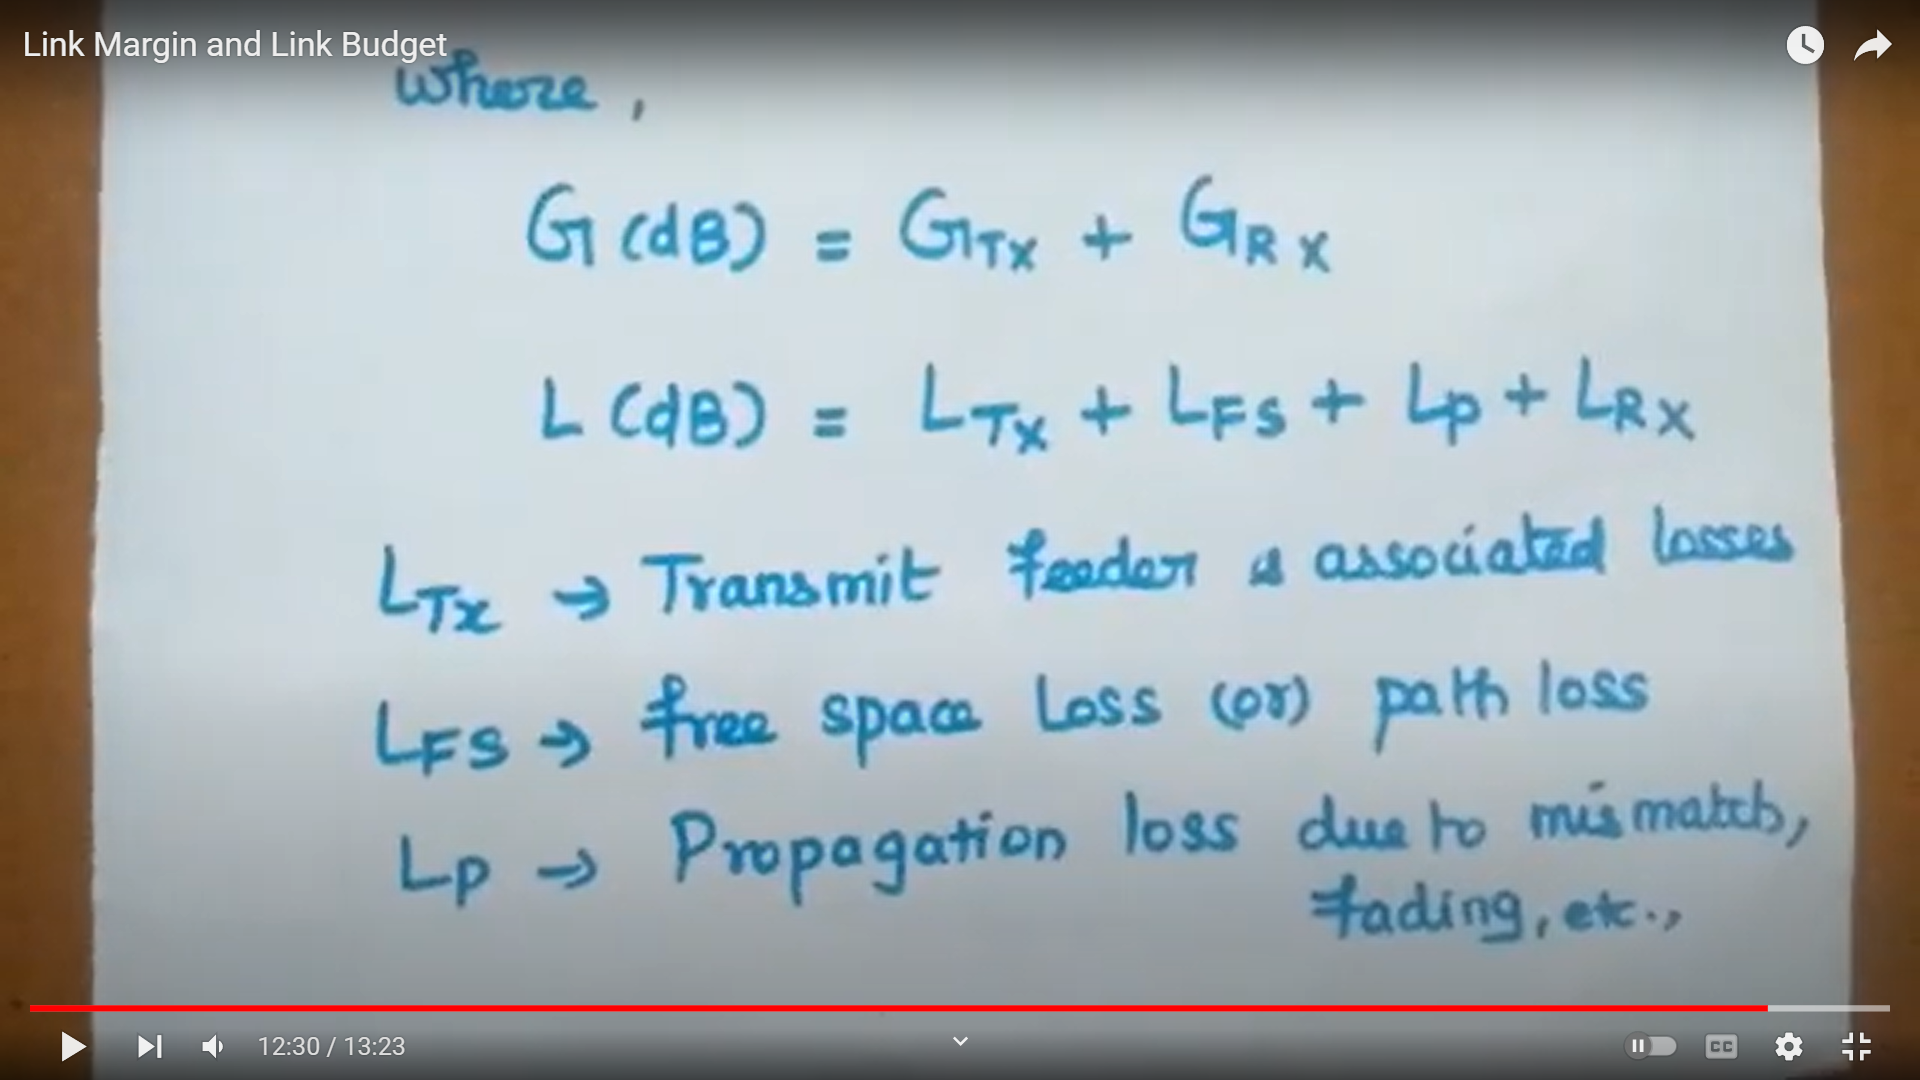 Link Margin and Link Budget
where,
G (dB) = GTx + GRX
L (dB) = LTx + LFS + Lp + LRX
LTx → Transmit feeder & associated losses
LFS → free space Loss (or) path loss
Lp → Propagation loss due to mismatch,
fading, etc.,
12:30 / 13:23
CC